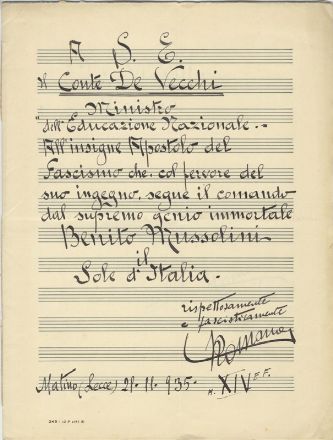 A S. E.
il Conte De Vecchi
Ministro
dell'Educazione Nazionale.-
All'insigne Apostolo del
Fascismo che, col fervore del
suo ingegno, segue il comando
dal supremo genio immortale
Benito Mussolini
il
Sole d'Italia.
rispettosamente
e fascisticamente
Romano
Matino (Lecce) 21.11.935. XIV E.F.